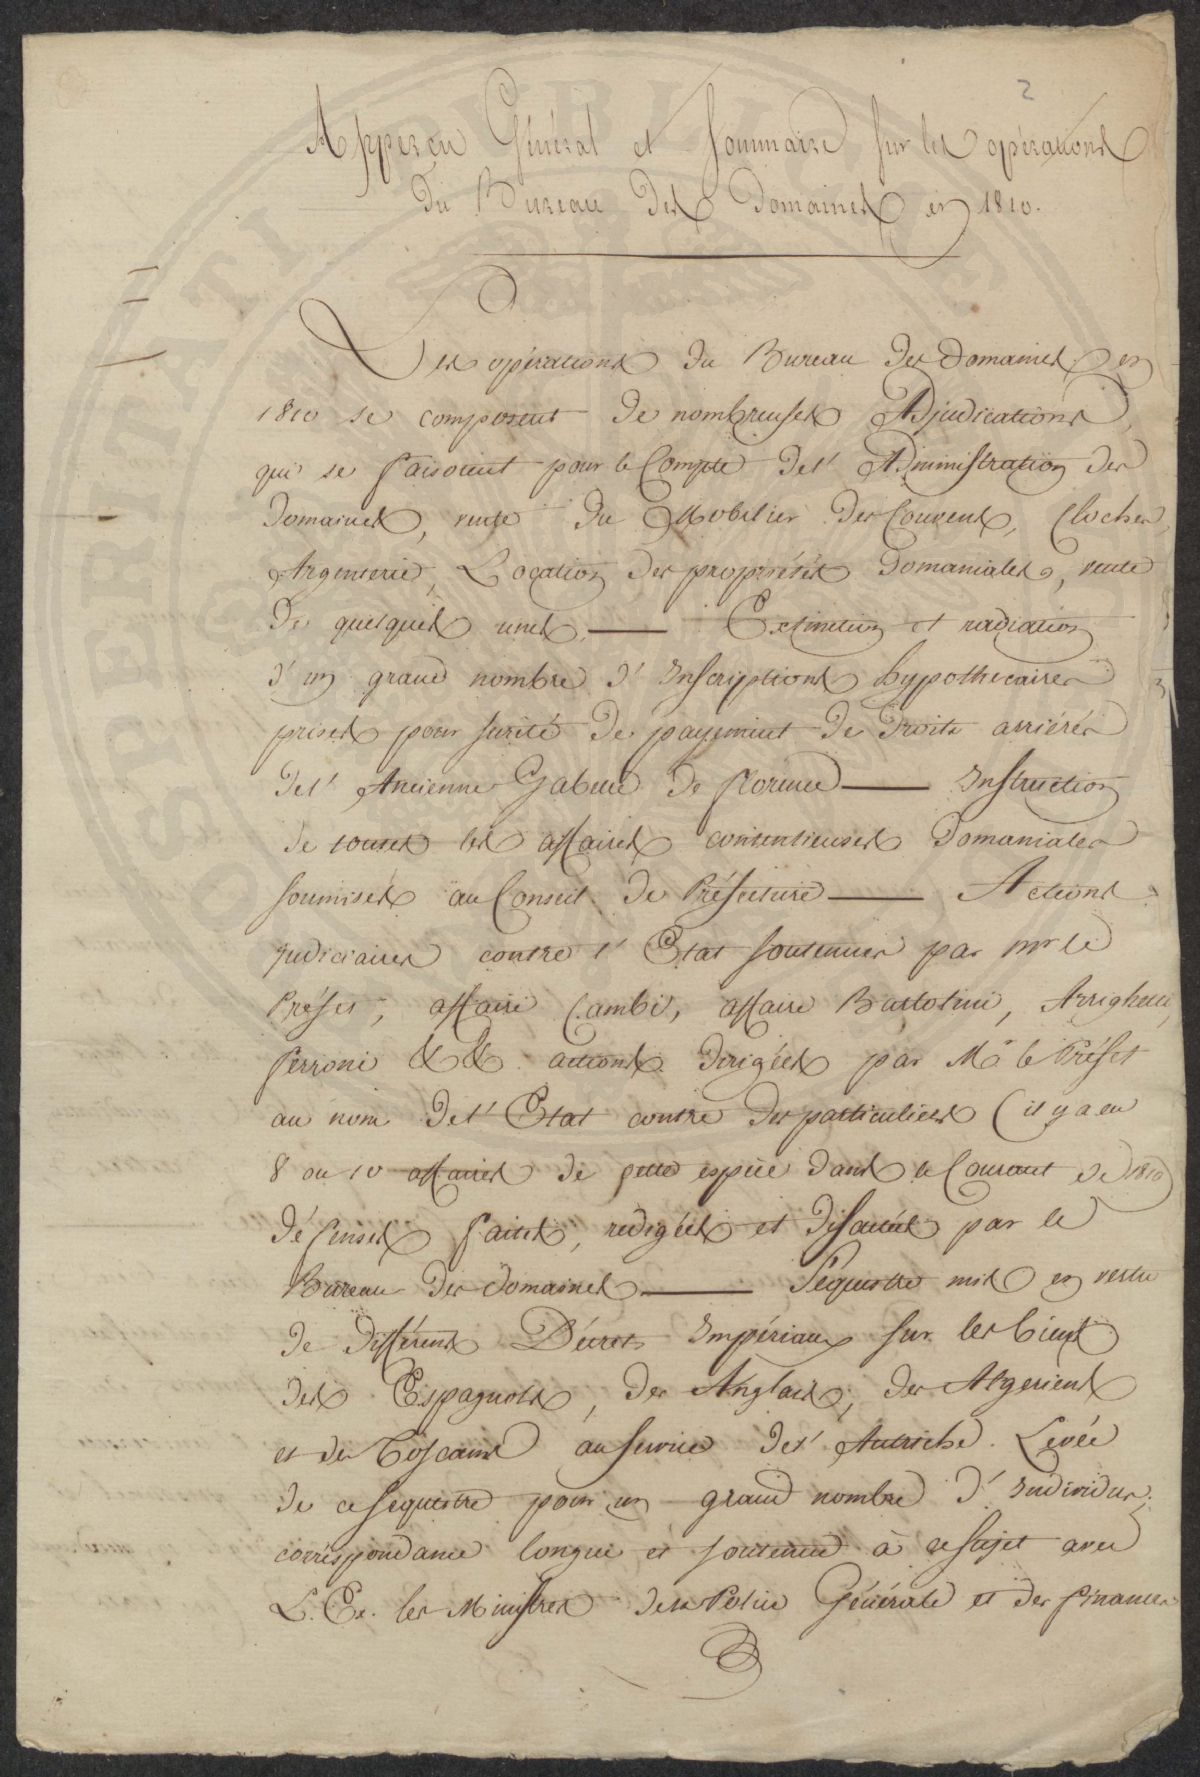 2
Apperçu Général et Sommaire sur les opérations
du Bureau des Domaines en 1810.
Les opérations du Bureau des Domaines en
1810 se composent de nombreuses Adjudications,
qui se faisoient pour le Compte de l'Administration des
Domaines, vente du Mobilier des Couvens, Cloches,
Argenterie, Location des propriétés Domaniales, vente
de quelques unes, — Extinction et radiation
d'un grand nombre d'Inscriptions hypothécaires
prises pour sureté de payement de Droits arriérés
de l'Ancienne Gabelle de Florence — Instruction
de toutes les affaires contentieuses Domaniales
soumises au Conseil de Préfecture — Actions
judiciaires contre l'Etat soutenues par Mr le
Préfet, affaire Cambi, affaire Bartolini, Arrighetti,
Perroni &c &c. actions dirigées par Mr le Préfet
au nom de l'Etat contre des particuliers (il y a eu
8 ou 10 affaires de cette espèce dans le Courant de 1810)
défenses faites, redigées et discutées par le
Bureau des Domaines — Sequestre mis en vertu
de différens Décrets Impériaux sur les biens
des Espagnols, des Anglais, des Algeriens
et des Toscans au service de l'Autriche. Levée
de ce sequestre pour un grand nombre d'Individus;
correspondance longue et soutenue à ce sujet avec
L. Ex. les Ministres de la Police Générale et des finances
OSPERITATI PUBLICAE